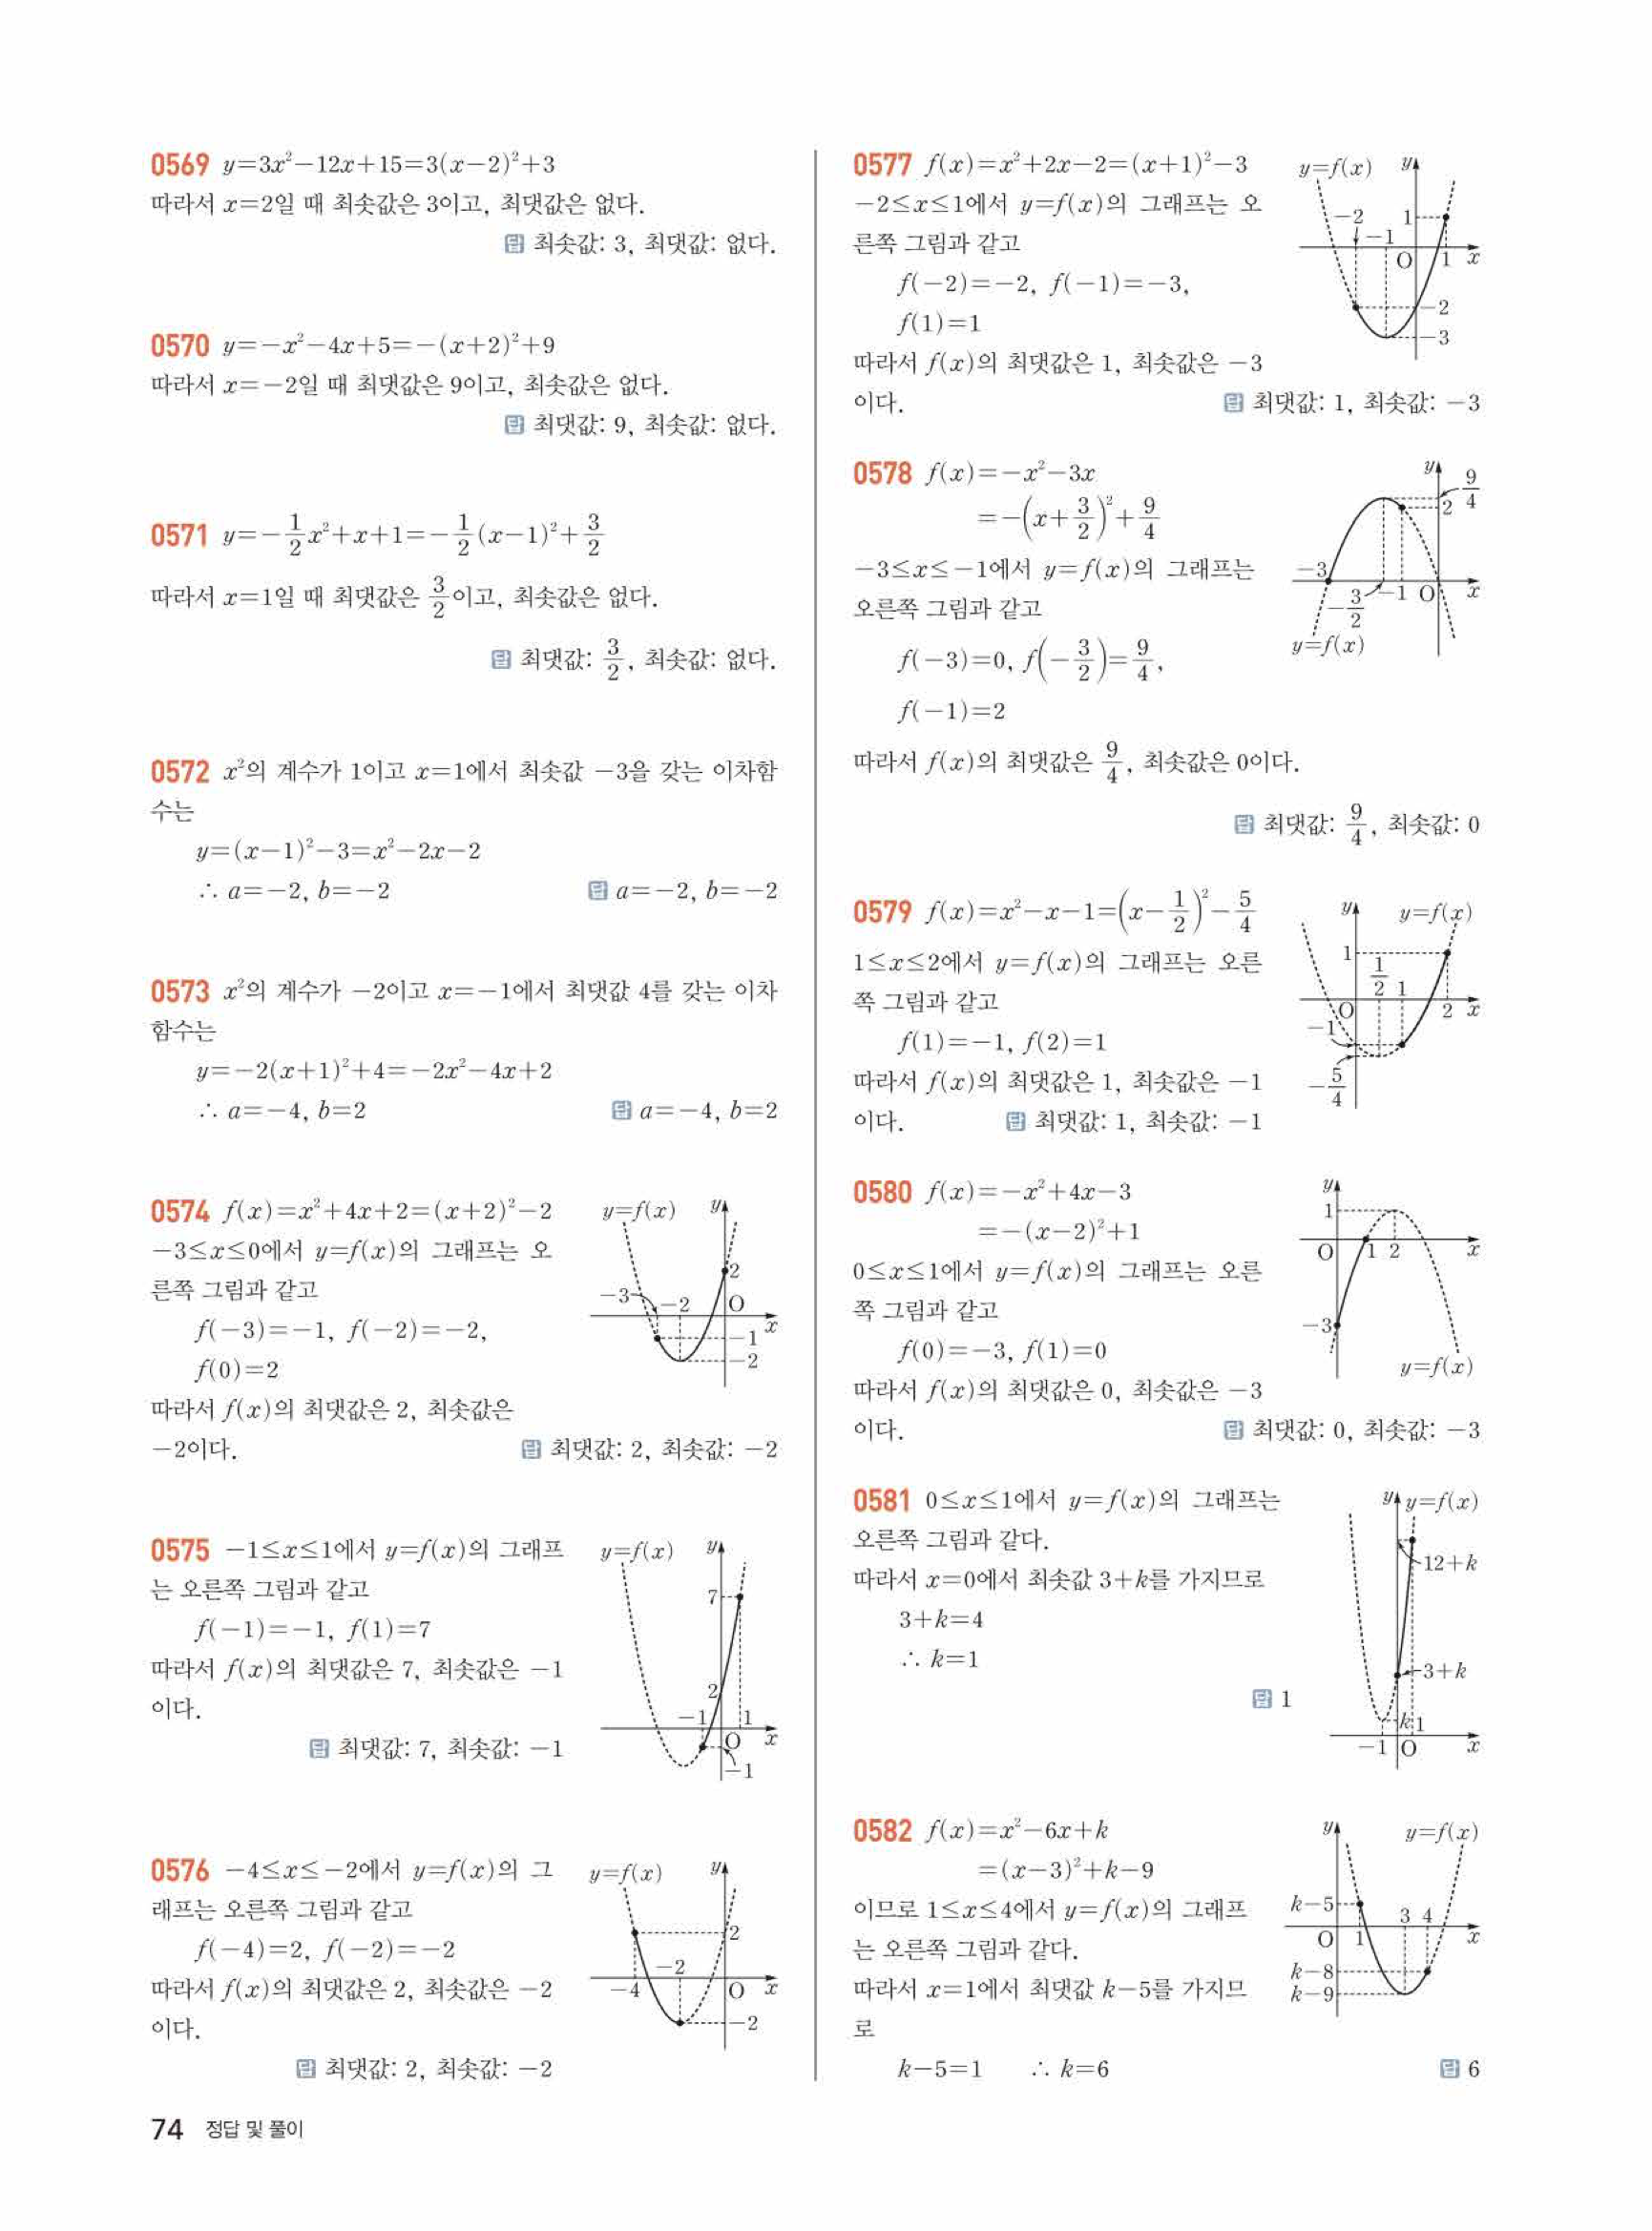 0569 y=3x²-12x+15=3(x-2)²+3
따라서 x=2일 때 최솟값은 3이고, 최댓값은 없다.
답 최솟값: 3, 최댓값: 없다.
0570 y=-x²-4x+5=-(x+2)²+9
따라서 x=-2일 때 최댓값은 9이고, 최솟값은 없다.
답 최댓값: 9, 최솟값: 없다.
0571 y=-1/2x²+x+1=-1/2(x-1)²+3/2
따라서 x=1일 때 최댓값은 3/2이고, 최솟값은 없다.
답 최댓값: 3/2, 최솟값: 없다.
0572 x²의 계수가 1이고 x=1에서 최솟값 -3을 갖는 이차함
수는
y=(x-1)²-3=x²-2x-2
∴ a=-2, b=-2 답 a=-2, b=-2
0573 x²의 계수가 -2이고 x=-1에서 최댓값 4를 갖는 이차
함수는
y=-2(x+1)²+4=-2x²-4x+2
∴ a=-4, b=2 답 a=-4, b=2
0574 f(x)=x²+4x+2=(x+2)²-2
-3≤x≤0에서 y=f(x)의 그래프는 오
른쪽 그림과 같고
f(-3)=-1, f(-2)=-2,
f(0)=2
따라서 f(x)의 최댓값은 2, 최솟값은
-2이다. 답 최댓값: 2, 최솟값: -2
y=f(x) y
2
-3 -2 O
-1 x
-2
0575 -1≤x≤1에서 y=f(x)의 그래프
는 오른쪽 그림과 같고
f(-1)=-1, f(1)=7
따라서 f(x)의 최댓값은 7, 최솟값은 -1
이다.
답 최댓값: 7, 최솟값: -1
y=f(x) y
7
2
-1 1
O x
-1
0576 -4≤x≤-2에서 y=f(x)의 그
래프는 오른쪽 그림과 같고
f(-4)=2, f(-2)=-2
따라서 f(x)의 최댓값은 2, 최솟값은 -2
이다.
답 최댓값: 2, 최솟값: -2
y=f(x) y
2
-2
-4 O x
-2
0577 f(x)=x²+2x-2=(x+1)²-3
-2≤x≤1에서 y=f(x)의 그래프는 오
른쪽 그림과 같고
f(-2)=-2, f(-1)=-3,
f(1)=1
따라서 f(x)의 최댓값은 1, 최솟값은 -3
이다. 답 최댓값: 1, 최솟값: -3
y=f(x) y
-2 1
-1
O 1 x
-2
-3
0578 f(x)=-x²-3x
=-(x+3/2)²+9/4
-3≤x≤-1에서 y=f(x)의 그래프는
오른쪽 그림과 같고
f(-3)=0, f(-3/2)=9/4,
f(-1)=2
따라서 f(x)의 최댓값은 9/4, 최솟값은 0이다.
답 최댓값: 9/4, 최솟값: 0
y 9/4
2
-3
-3/2 -1 O x
y=f(x)
0579 f(x)=x²-x-1=(x-1/2)²-5/4
1≤x≤2에서 y=f(x)의 그래프는 오른
쪽 그림과 같고
f(1)=-1, f(2)=1
따라서 f(x)의 최댓값은 1, 최솟값은 -1
이다. 답 최댓값: 1, 최솟값: -1
y y=f(x)
1
1/2 1
O 2 x
-1
-5/4
0580 f(x)=-x²+4x-3
=-(x-2)²+1
0≤x≤1에서 y=f(x)의 그래프는 오른
쪽 그림과 같고
f(0)=-3, f(1)=0
따라서 f(x)의 최댓값은 0, 최솟값은 -3
이다. 답 최댓값: 0, 최솟값: -3
y
1
O 1 2 x
-3
y=f(x)
0581 0≤x≤1에서 y=f(x)의 그래프는
오른쪽 그림과 같다.
따라서 x=0에서 최솟값 3+k를 가지므로
3+k=4
∴ k=1
답 1
y y=f(x)
12+k
3+k
k 1
-1 O x
0582 f(x)=x²-6x+k
=(x-3)²+k-9
이므로 1≤x≤4에서 y=f(x)의 그래프
는 오른쪽 그림과 같다.
따라서 x=1에서 최댓값 k-5를 가지므
로
k-5=1 ∴ k=6 답 6
y y=f(x)
k-5
3 4
O 1 x
k-8
k-9
74 정답 및 풀이